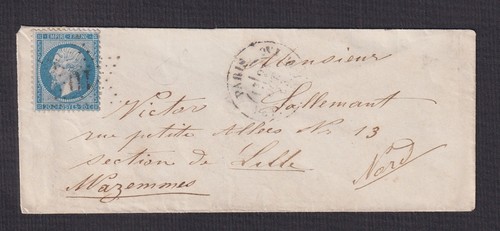 EMPIRE FRANC
20 C POSTES 20 C
PARIS
Monsieur
Victor Lallemant
rue petite Allées No 13
section de Lille
Wazemmes
Nord